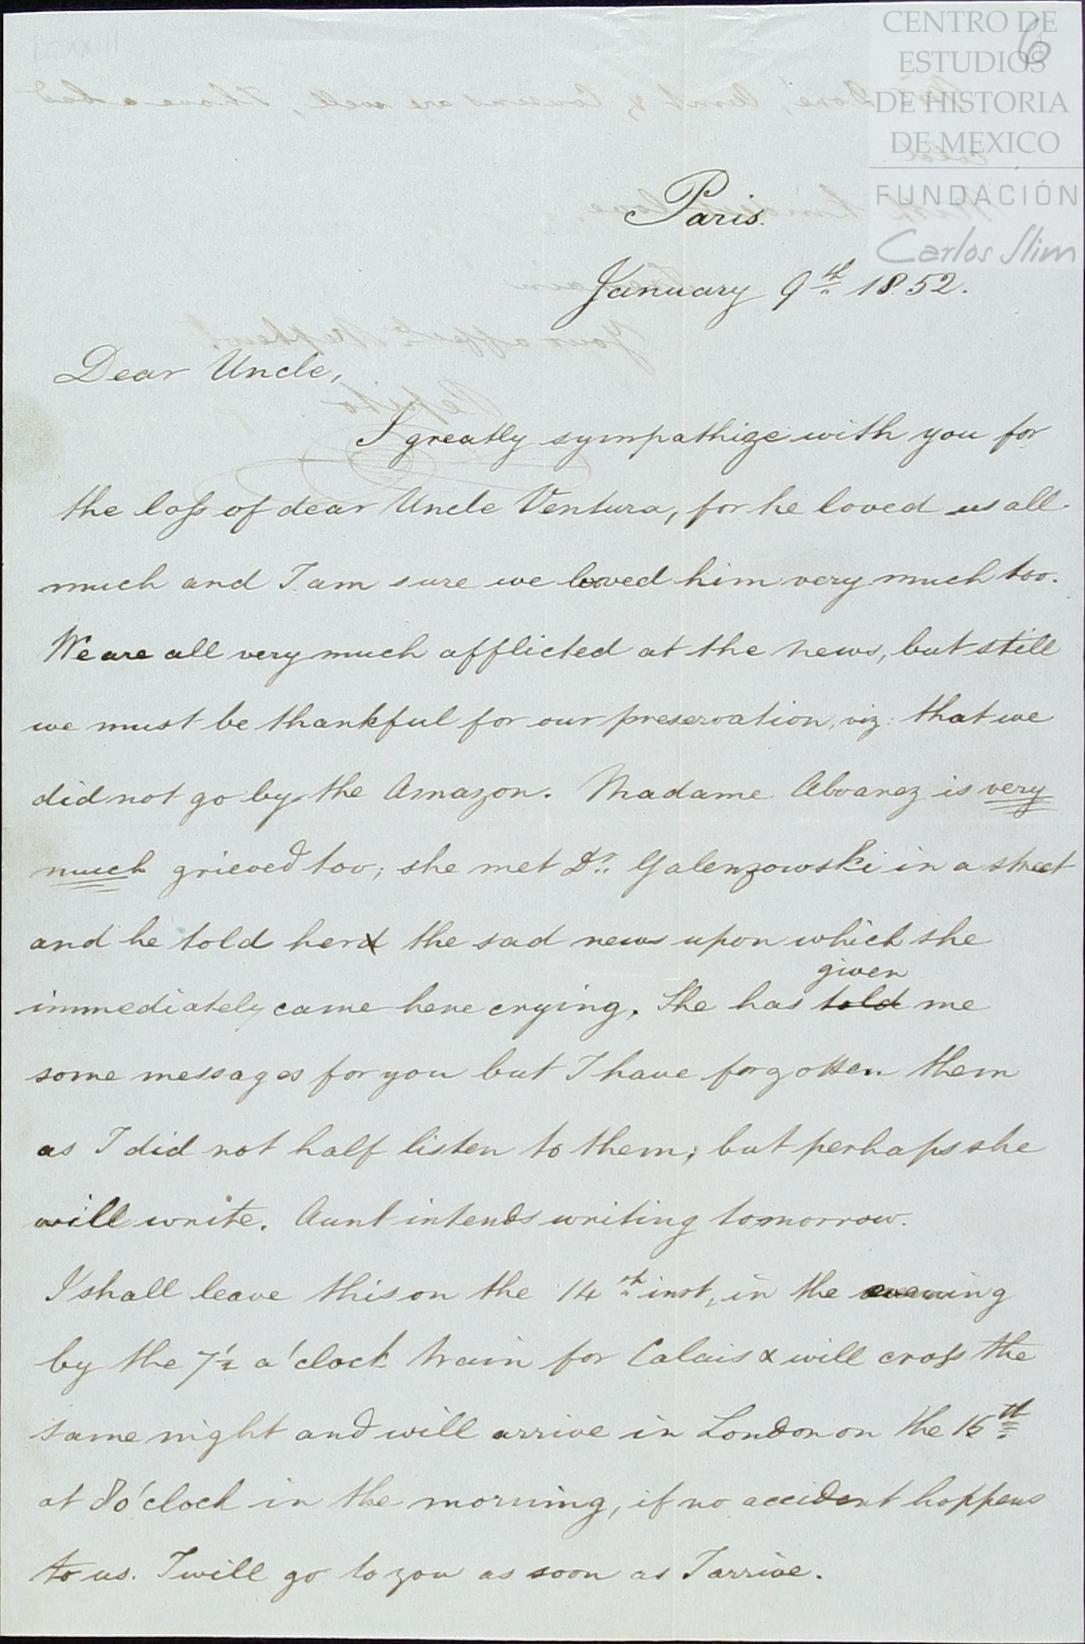 CENTRO DE
ESTUDIOS
DE HISTORIA
DE MEXICO
FUNDACIÓN
Carlos Slim
6
Paris.
January 9th 1852.
Dear Uncle,
I greatly sympathize with you for
the loss of dear Uncle Ventura, for he loved us all
much and I am sure we loved him very much too.
We are all very much afflicted at the news, but still
we must be thankful for our preservation, viz: that we
did not go by the Amazon. Madame Alvarez is very
much grieved too; she met Dr. Galenzowski in a street
and he told her the sad news upon which she
immediately came here crying. She has told given me
some messages for you but I have forgotten them
as I did not half listen to them; but perhaps she
will write. Aunt intends writing tomorrow.
I shall leave this on the 14th inst, in the evening
by the 7½ o'clock train for Calais & will cross the
same night and will arrive in London on the 15th
at 8 o'clock in the morning, if no accident happens
to us. I will go to you as soon as I arrive.